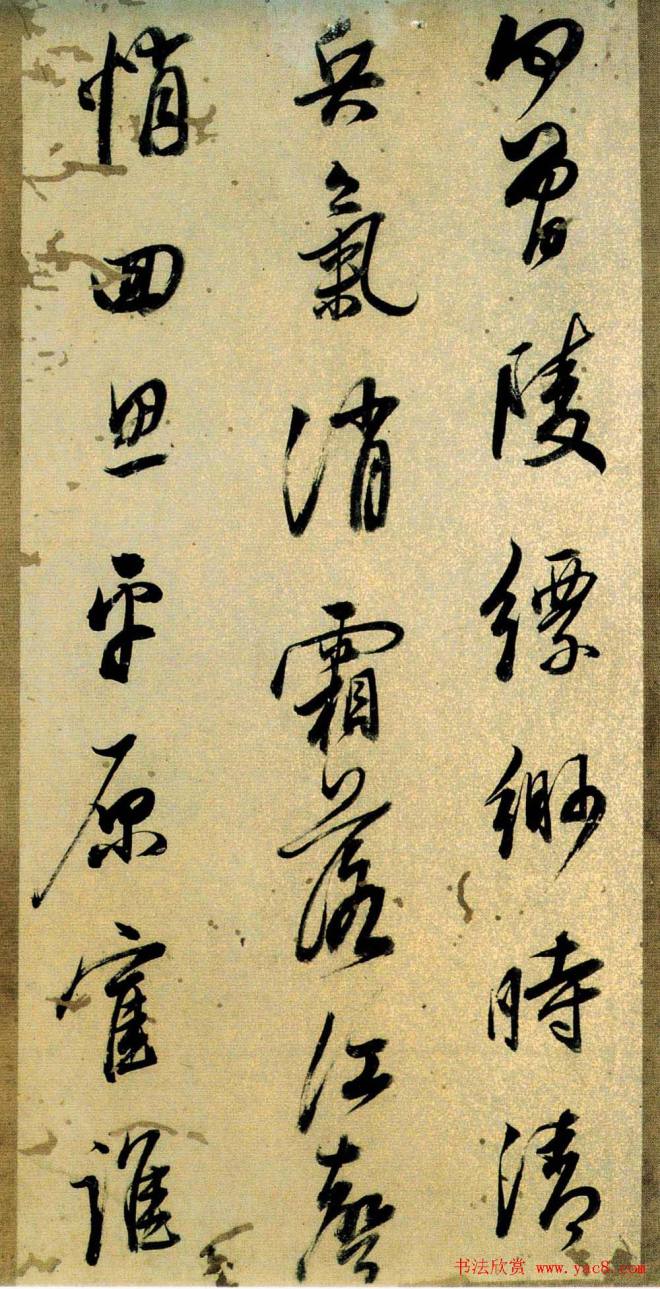 向曾陵縹緲時清
兵氣消霜落江聲
悄回思平原誰
书法欣赏 www.yac8.com